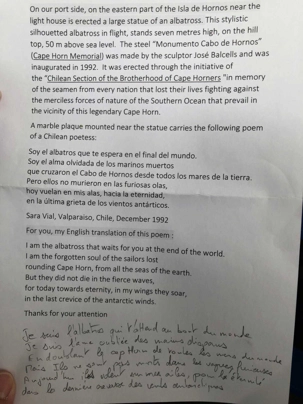 On our port side, on the eastern part of the Isla de Hornos near the
light house is erected a large statue of an albatross. This stylistic
silhouetted albatross in flight, stands seven metres high, on the hill
top, 50 m above sea level. The steel "Monumento Cabo de Hornos"
(Cape Horn Memorial) was made by the sculptor José Balcells and was
inaugurated in 1992. It was erected through the initiative of
the "Chilean Section of the Brotherhood of Cape Horners "in memory
of the seamen from every nation that lost their lives fighting against
the merciless forces of nature of the Southern Ocean that prevail in
the vicinity of this legendary Cape Horn.
A marble plaque mounted near the statue carries the following poem
of a Chilean poetess:
Soy el albatros que te espera en el final del mundo.
Soy el alma olvidada de los marinos muertos
que cruzaron el Cabo de Hornos desde todos los mares de la tierra.
Pero ellos no murieron en las furiosas olas,
hoy vuelan en mis alas, hacia la eternidad,
en la última grieta de los vientos antárticos.
Sara Vial, Valparaiso, Chile, December 1992
For you, my English translation of this poem :
I am the albatross that waits for you at the end of the world.
I am the forgotten soul of the sailors lost
rounding Cape Horn, from all the seas of the earth.
But they did not die in the fierce waves,
for today towards eternity, in my wings they soar,
in the last crevice of the antarctic winds.
Thanks for your attention
Je suis l'albatros qui t'attend au bout du monde
Je suis l'âme oubliée des marins disparus
En doublant le cap Horn de toutes les mers du monde
Mais Ils ne sont pas morts dans les vagues furieuses
Aujourd'hui ils volent sur mes ailes, pour l'éternité
dans la dernière crevasse des vents antarctiques